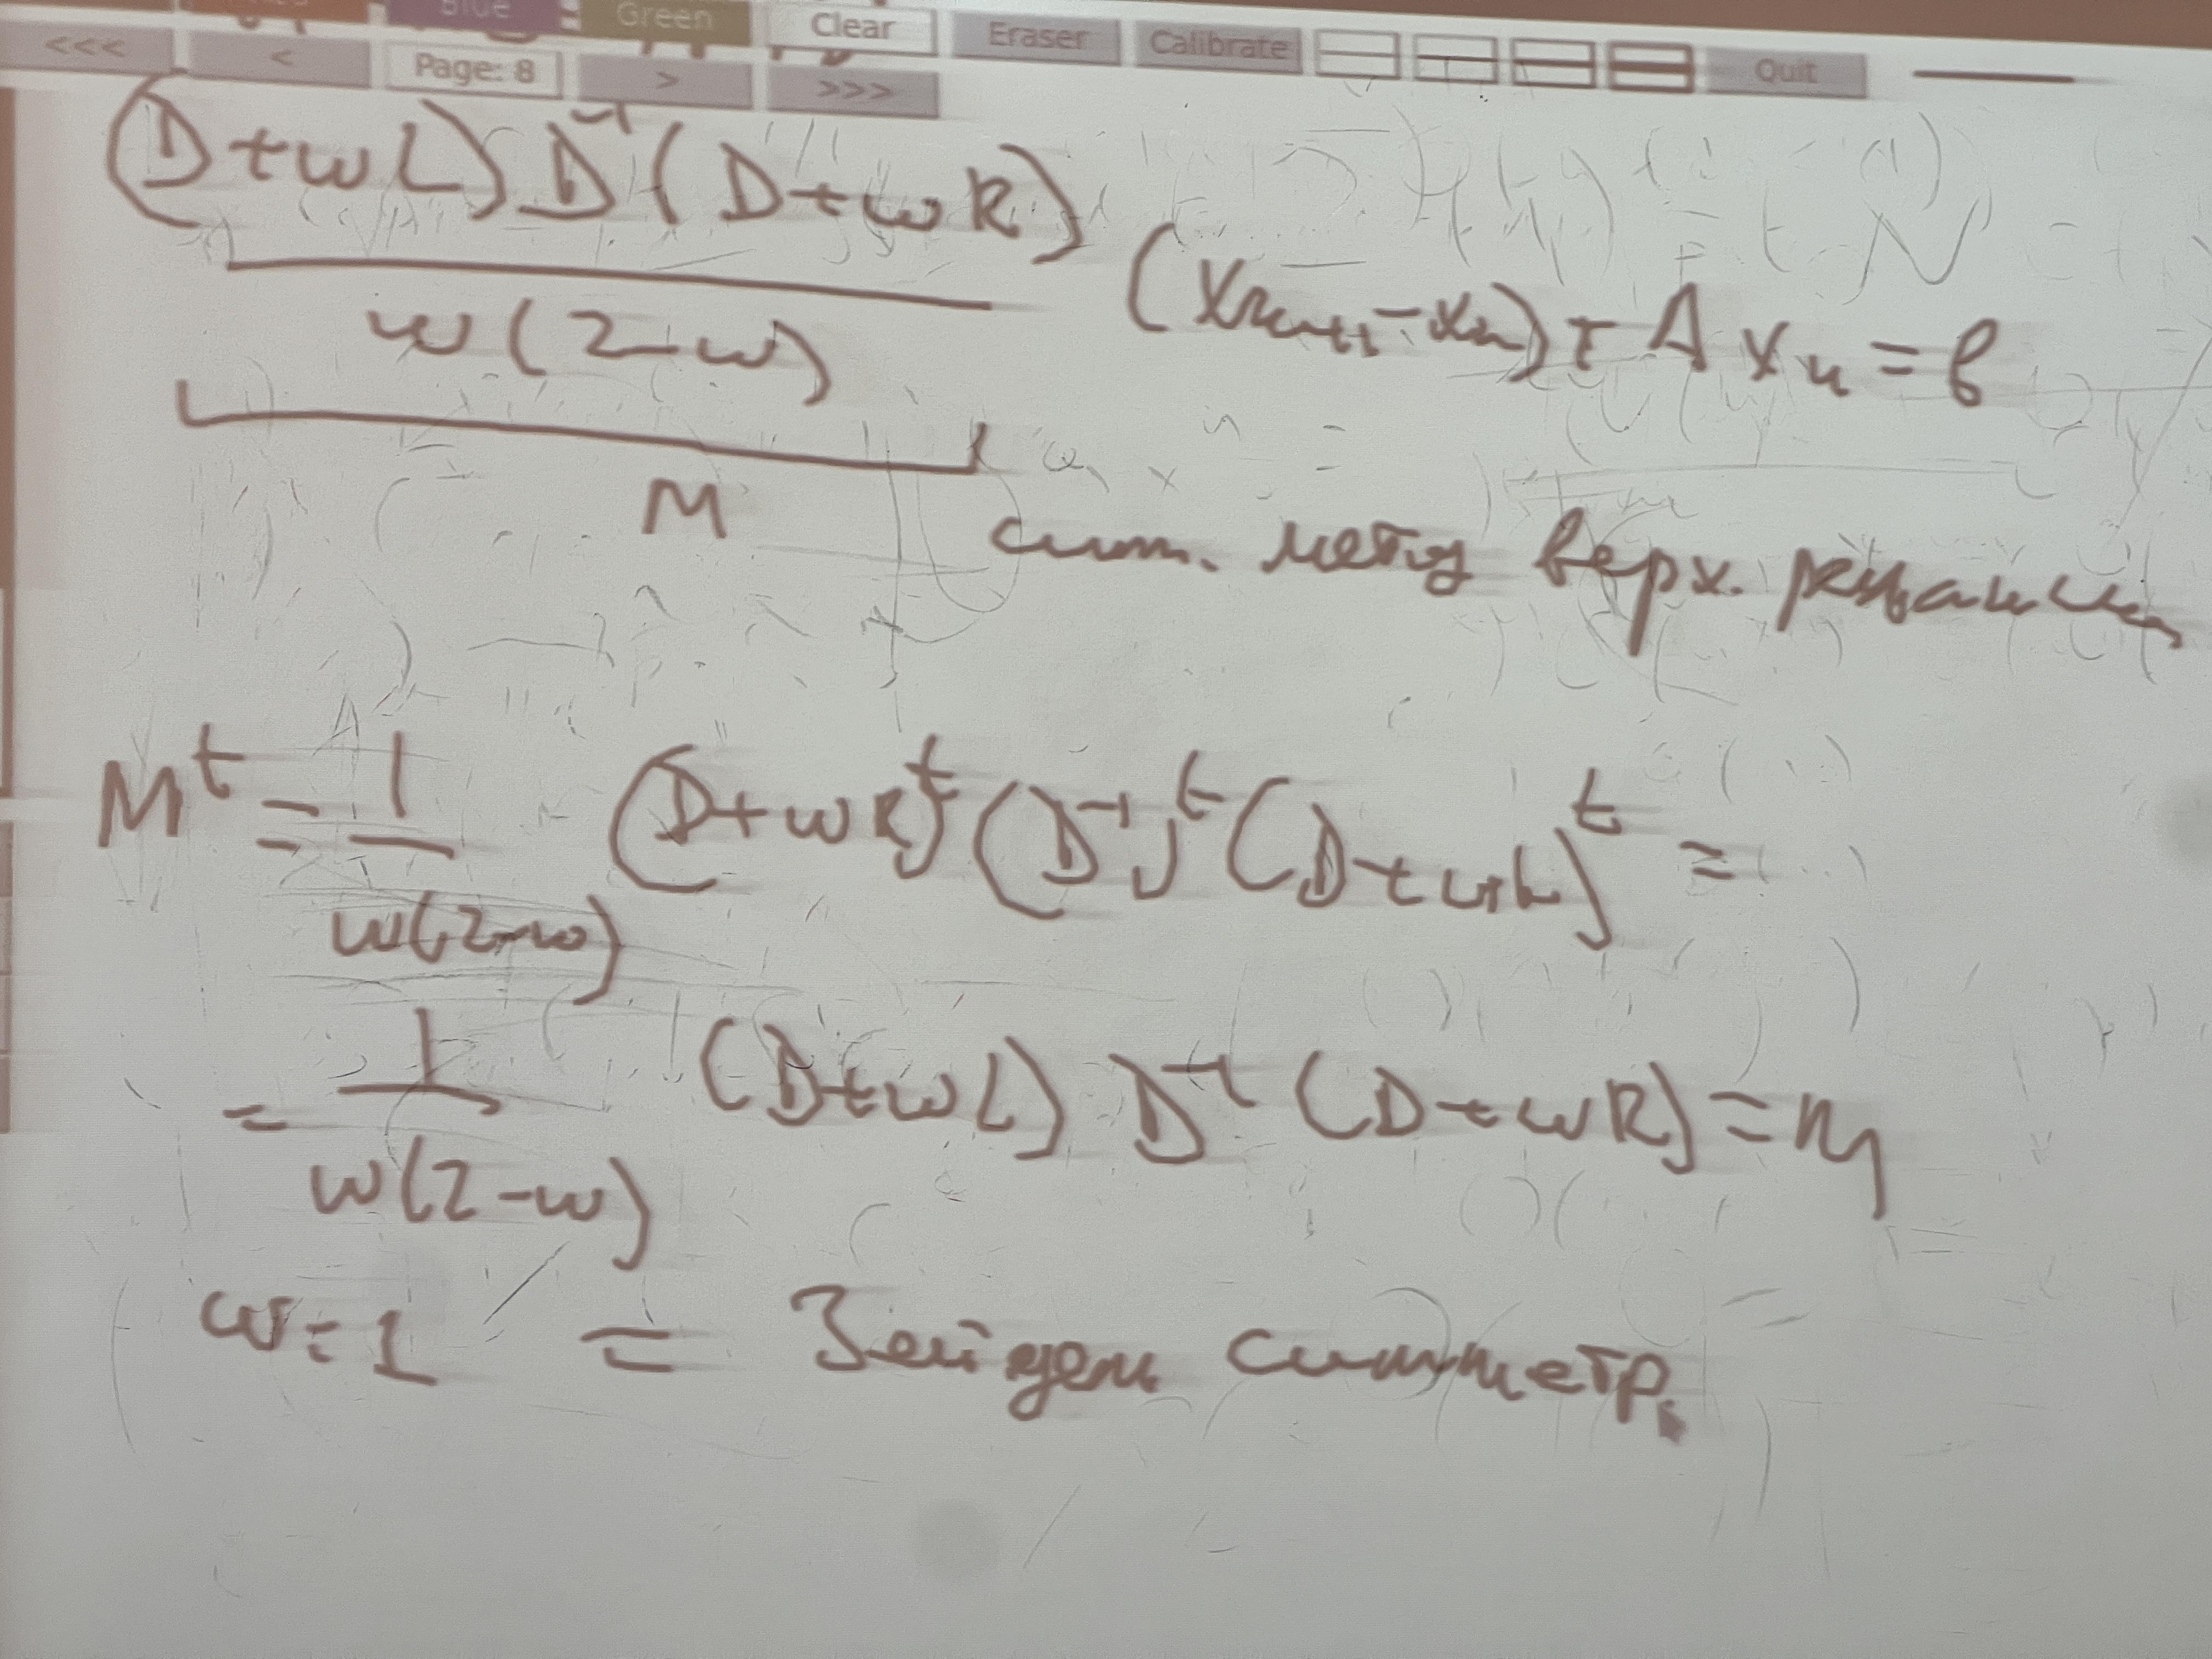 Blue Green Clear Eraser Calibrate Quit
<<< < Page: 8 > >>>
(D+wL)D⁻¹(D+wR)
(xₙ₊₁-xₙ)+Axₙ=b
w(2-w)
M
сим. метод верх. релаксации
Mᵗ = 1/w(2-w) (D+wR)ᵗ(D⁻¹)ᵗ(D+wL)ᵗ =
= 1/w(2-w) (D+wL) D⁻¹ (D+wR) = M
w=1 = Зейдель симметр.